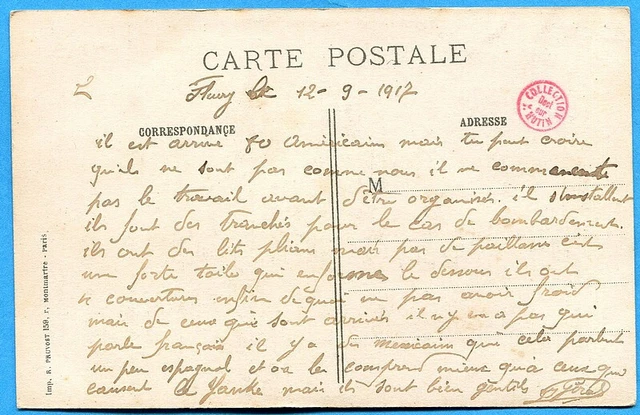 CARTE POSTALE
Fleury le 12-9-1917
COLLECTION
CORRESPONDANCE
ADRESSE
M
il est arrivé 80 Américains mais tu peut croire
quils ne sont pas comme nous il ne commencente
pas le travail avant d'être organisés. il s'installent
ils font des tranchés pour le cas de bombardements.
ils ont des lits pliants mais pas de paillasse c'est
une forte toile qui enforme le dessous ils ont
4 couvertures enfin de quoi ne pas avoir froid
mais de ceux qui sont arrivés il n'y en a pas qui
parle français il y a des mexicains qui cela parlent
un peu espagnol et on les comprend mieux qu'a ceux que
causent le Yankee mais ils sont bien gentils
Imp. R. PRUVOST 159, r. Montmartre - Paris